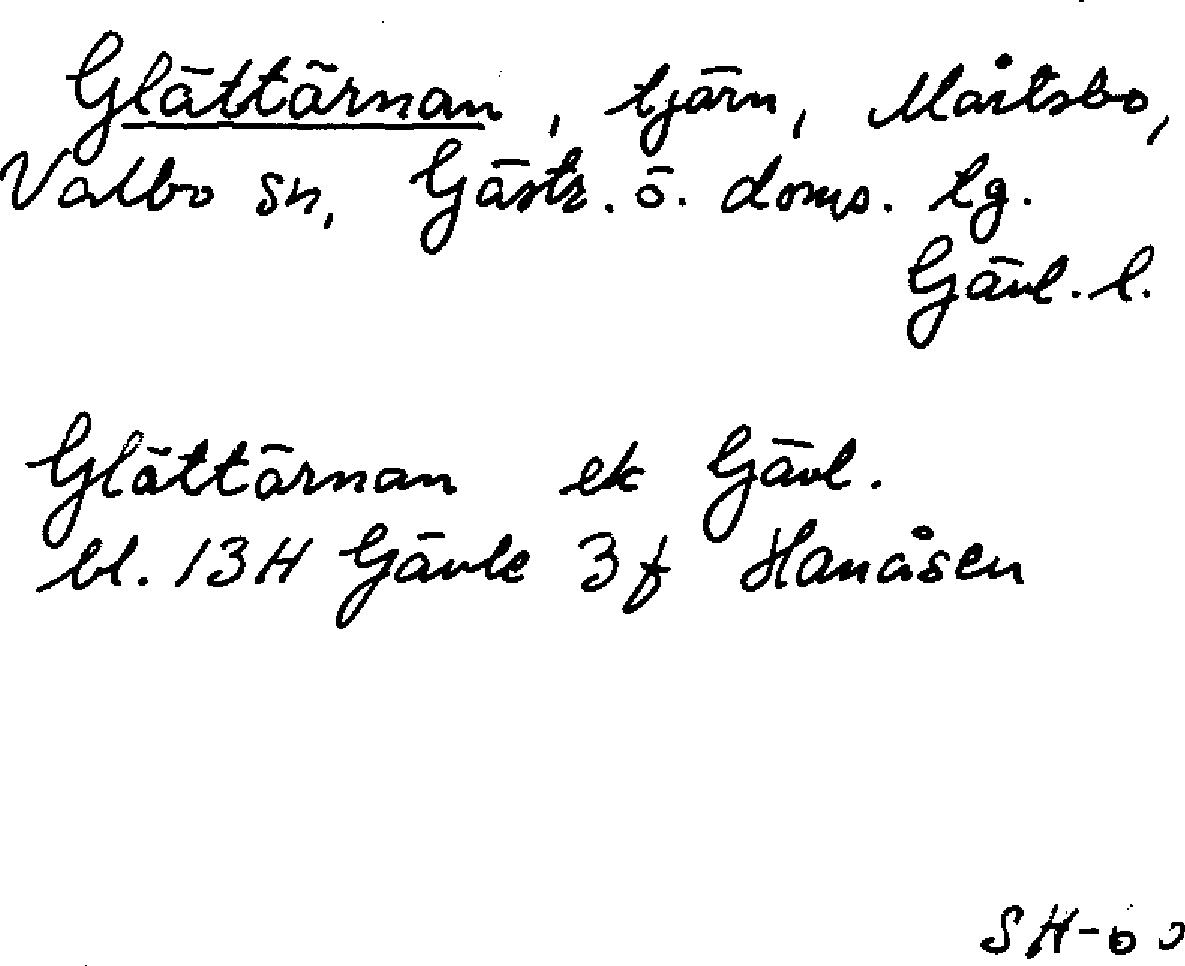 Glättärnan, tjärn, Mårtsbo,
Valbo sn, Gästr. ö. doms. tg.
Gävl. l.
Glättärnan ek Gävl.
bl. 13H Gävle 3f Hanåsen
SH-60